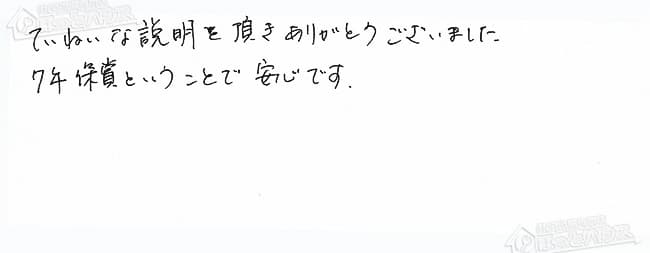 ていねいな説明を頂きありがとうございました
7年保賞ということで安心です.